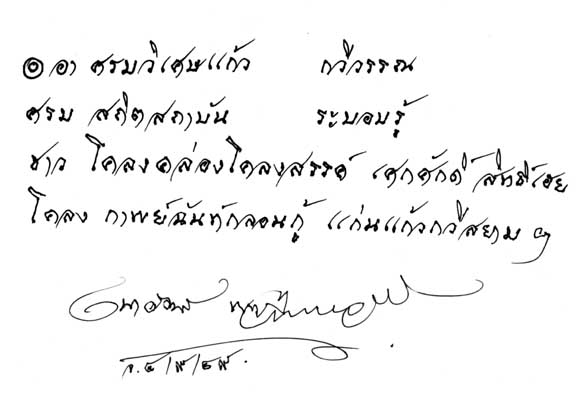 ๏ อา ศรมวิเศษแก้ว กวีวรรณ
ศรม สถิตสถาบัน ระบอบรู้
ชาว โคลงคล่องโคลงสรรค์ เศกศักดิ์ สิทธิ์เฮย
โคลง กาพย์ฉันท์กลอนกู้ แก่นแก้วกวีสยาม ๚